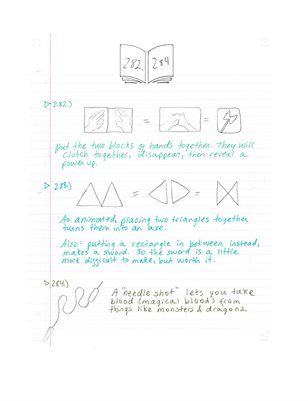 282. 284
282.)
Put the two blocks of hands together. They will
clutch together, disappear, then reveal a
power up.
283.)
As animated, placing two triangles together
turns them into an axe.
Also: putting a rectangle in between instead,
makes a sword. So the sword is a little
more difficult to make, but worth it.
284.)
A "needle shot" lets you take
blood (magical blood) from
things like monsters & dragons.